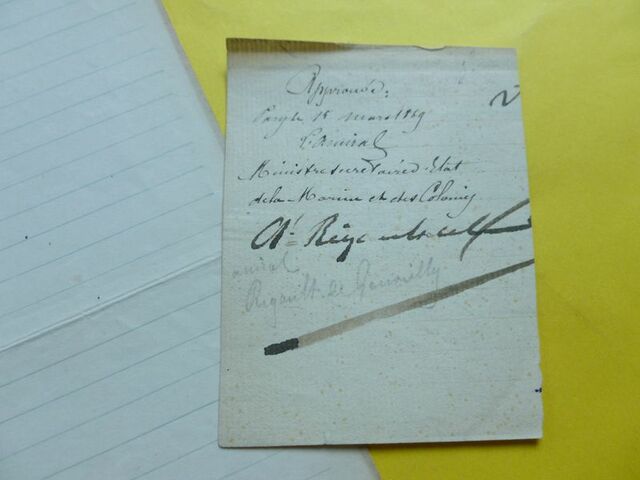 Approuvé:
2
Paris le 18 mars 1869
L'Amiral
Ministre secrétaire d'Etat
de la Marine et des Colonies
Al Rigault de G
amiral
Rigault de Genouilly